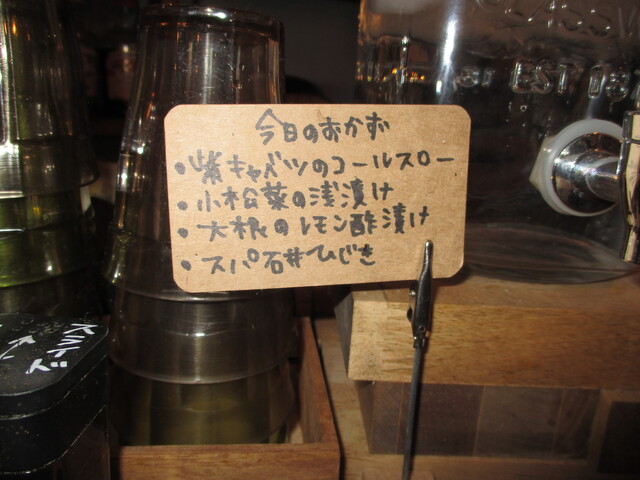 今日のおかず
・紫キャベツのコールスロー
・小松菜の浅漬け
・大根のレモン酢漬け
・スパ石井ひじき
EST D